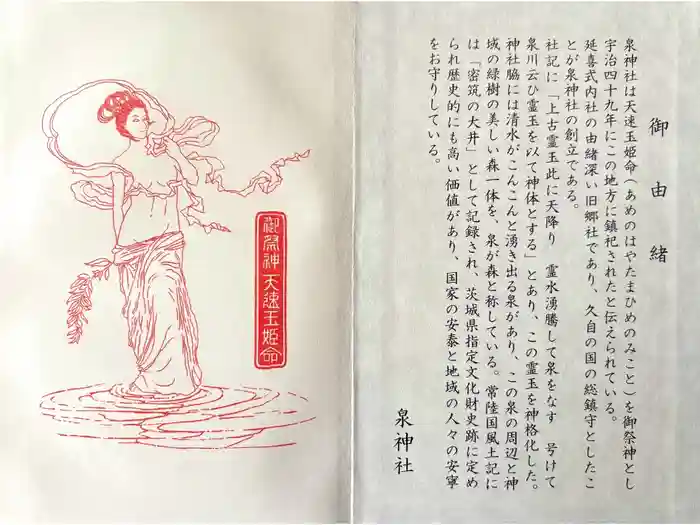 御由緒
泉神社は天速玉姫命(あめのはやたまひめのみこと)を御祭神とし
宇治四十九年にこの地方に鎮祀されたと伝えられている。
延喜式内社の由緒深い旧郷社であり、久自の国の総鎮守としたこ
とが泉神社の創立である。
社記に「上古霊玉此に天降り 霊水湧騰して泉をなす 号けて
泉川云ひ霊玉を以て神体とする」とあり、この霊玉を神格化した。
神社脇には清水がこんこんと湧き出る泉があり、この泉の周辺と神
域の緑樹の美しい森一体を、泉が森と称している。常陸国風土記に
は「密筑の大井」として記録され、茨城県指定文化財史跡に定め
られ歴史的にも高い価値があり、国家の安泰と地域の人々の安寧
をお守りしている。
泉神社
御祭神 天速玉姫命